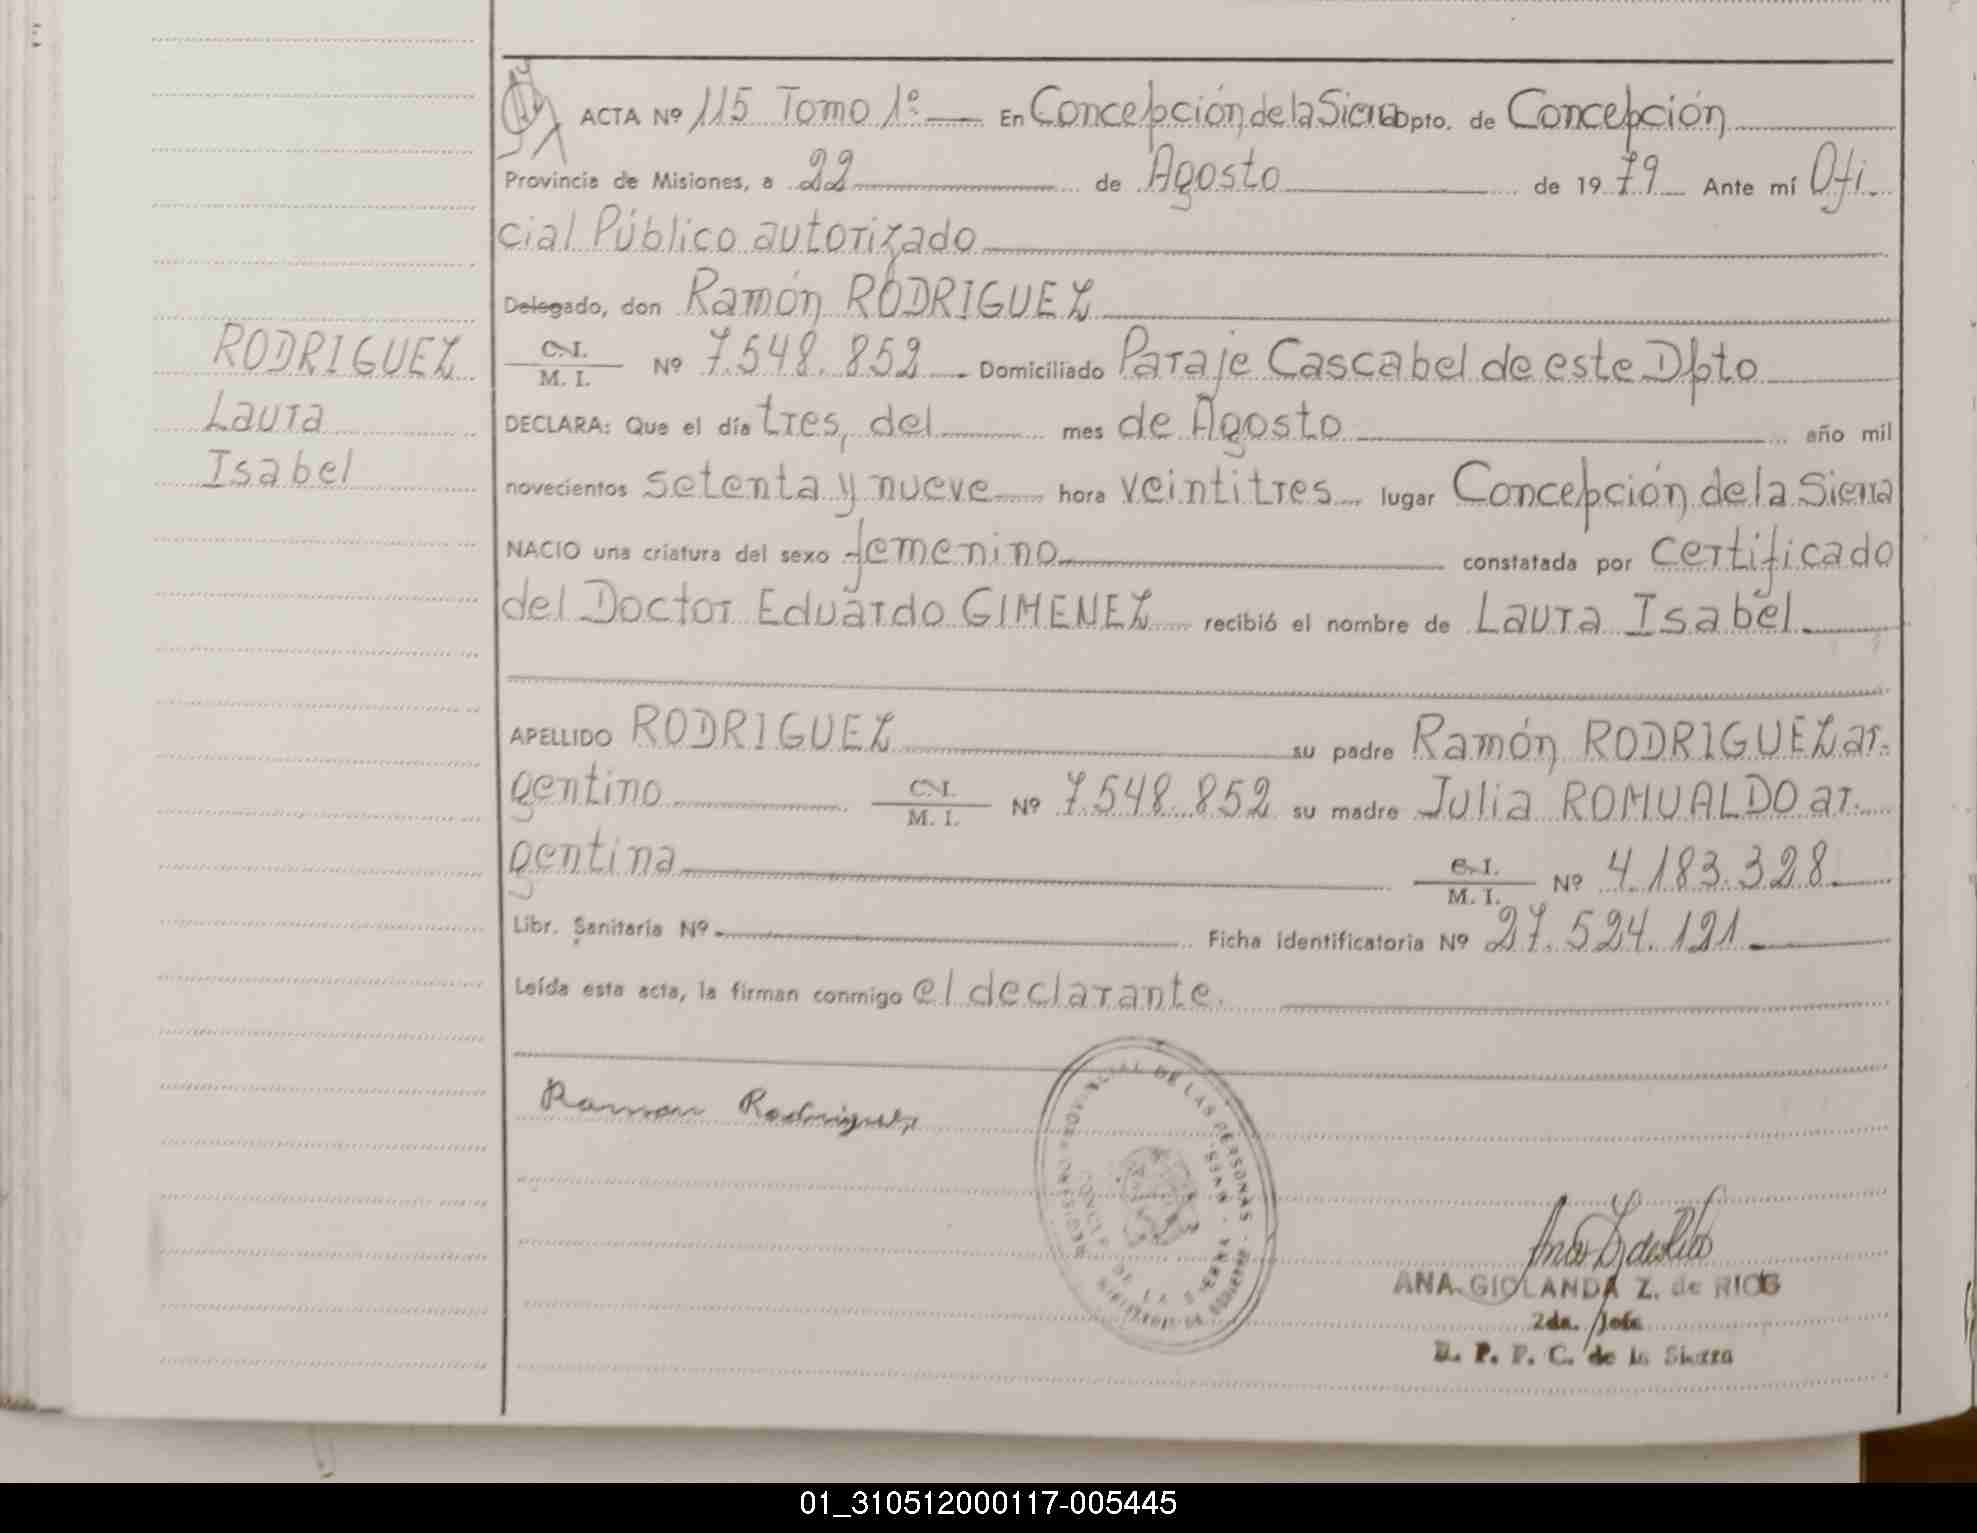 ACTA Nº 115 Tomo 1º En Concepción de la Sierra Dpto. de Concepción
Provincia de Misiones, a 22 de Agosto de 1979 Ante mí Ofi
cial Público autorizado
Delegado, don Ramón RODRIGUEZ
C. I. / M. I. Nº 7.548.852 Domiciliado Paraje Cascabel de este Dpto
DECLARA: Que el día tres, del mes de Agosto año mil
novecientos setenta y nueve hora veintitres lugar Concepción de la Sierra
NACIO una criatura del sexo femenino constatada por certificado
del Doctor Eduardo GIMENEZ recibió el nombre de Laura Isabel
RODRIGUEZ
Laura
Isabel
APELLIDO RODRIGUEZ su padre Ramón RODRIGUEZ ar-
gentino C. I. / M. I. Nº 7.548.852 su madre Julia ROMUALDO ar-
gentina C. I. / M. I. Nº 4.183.328
Libr. Sanitaria Nº Ficha identificatoria Nº 27.524.121
Leída esta acta, la firman conmigo el declarante.
Ramon Rodriguez
REGISTRO PROVINCIAL DE LAS PERSONAS
DE LA SIERRA
ANA GIOLANDA Z. de RIOS
2da. Jefe
de la Sierra
01_310512000117-005445